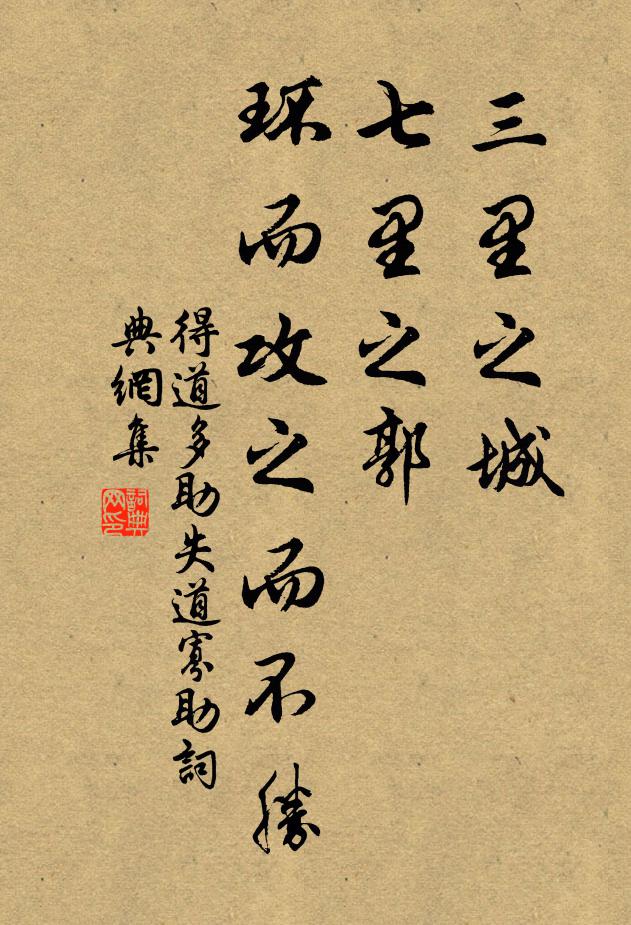 三里之城
七里之郭
环而攻之而不勝
得道多助失道寡助詞
典網集
詞典
网印